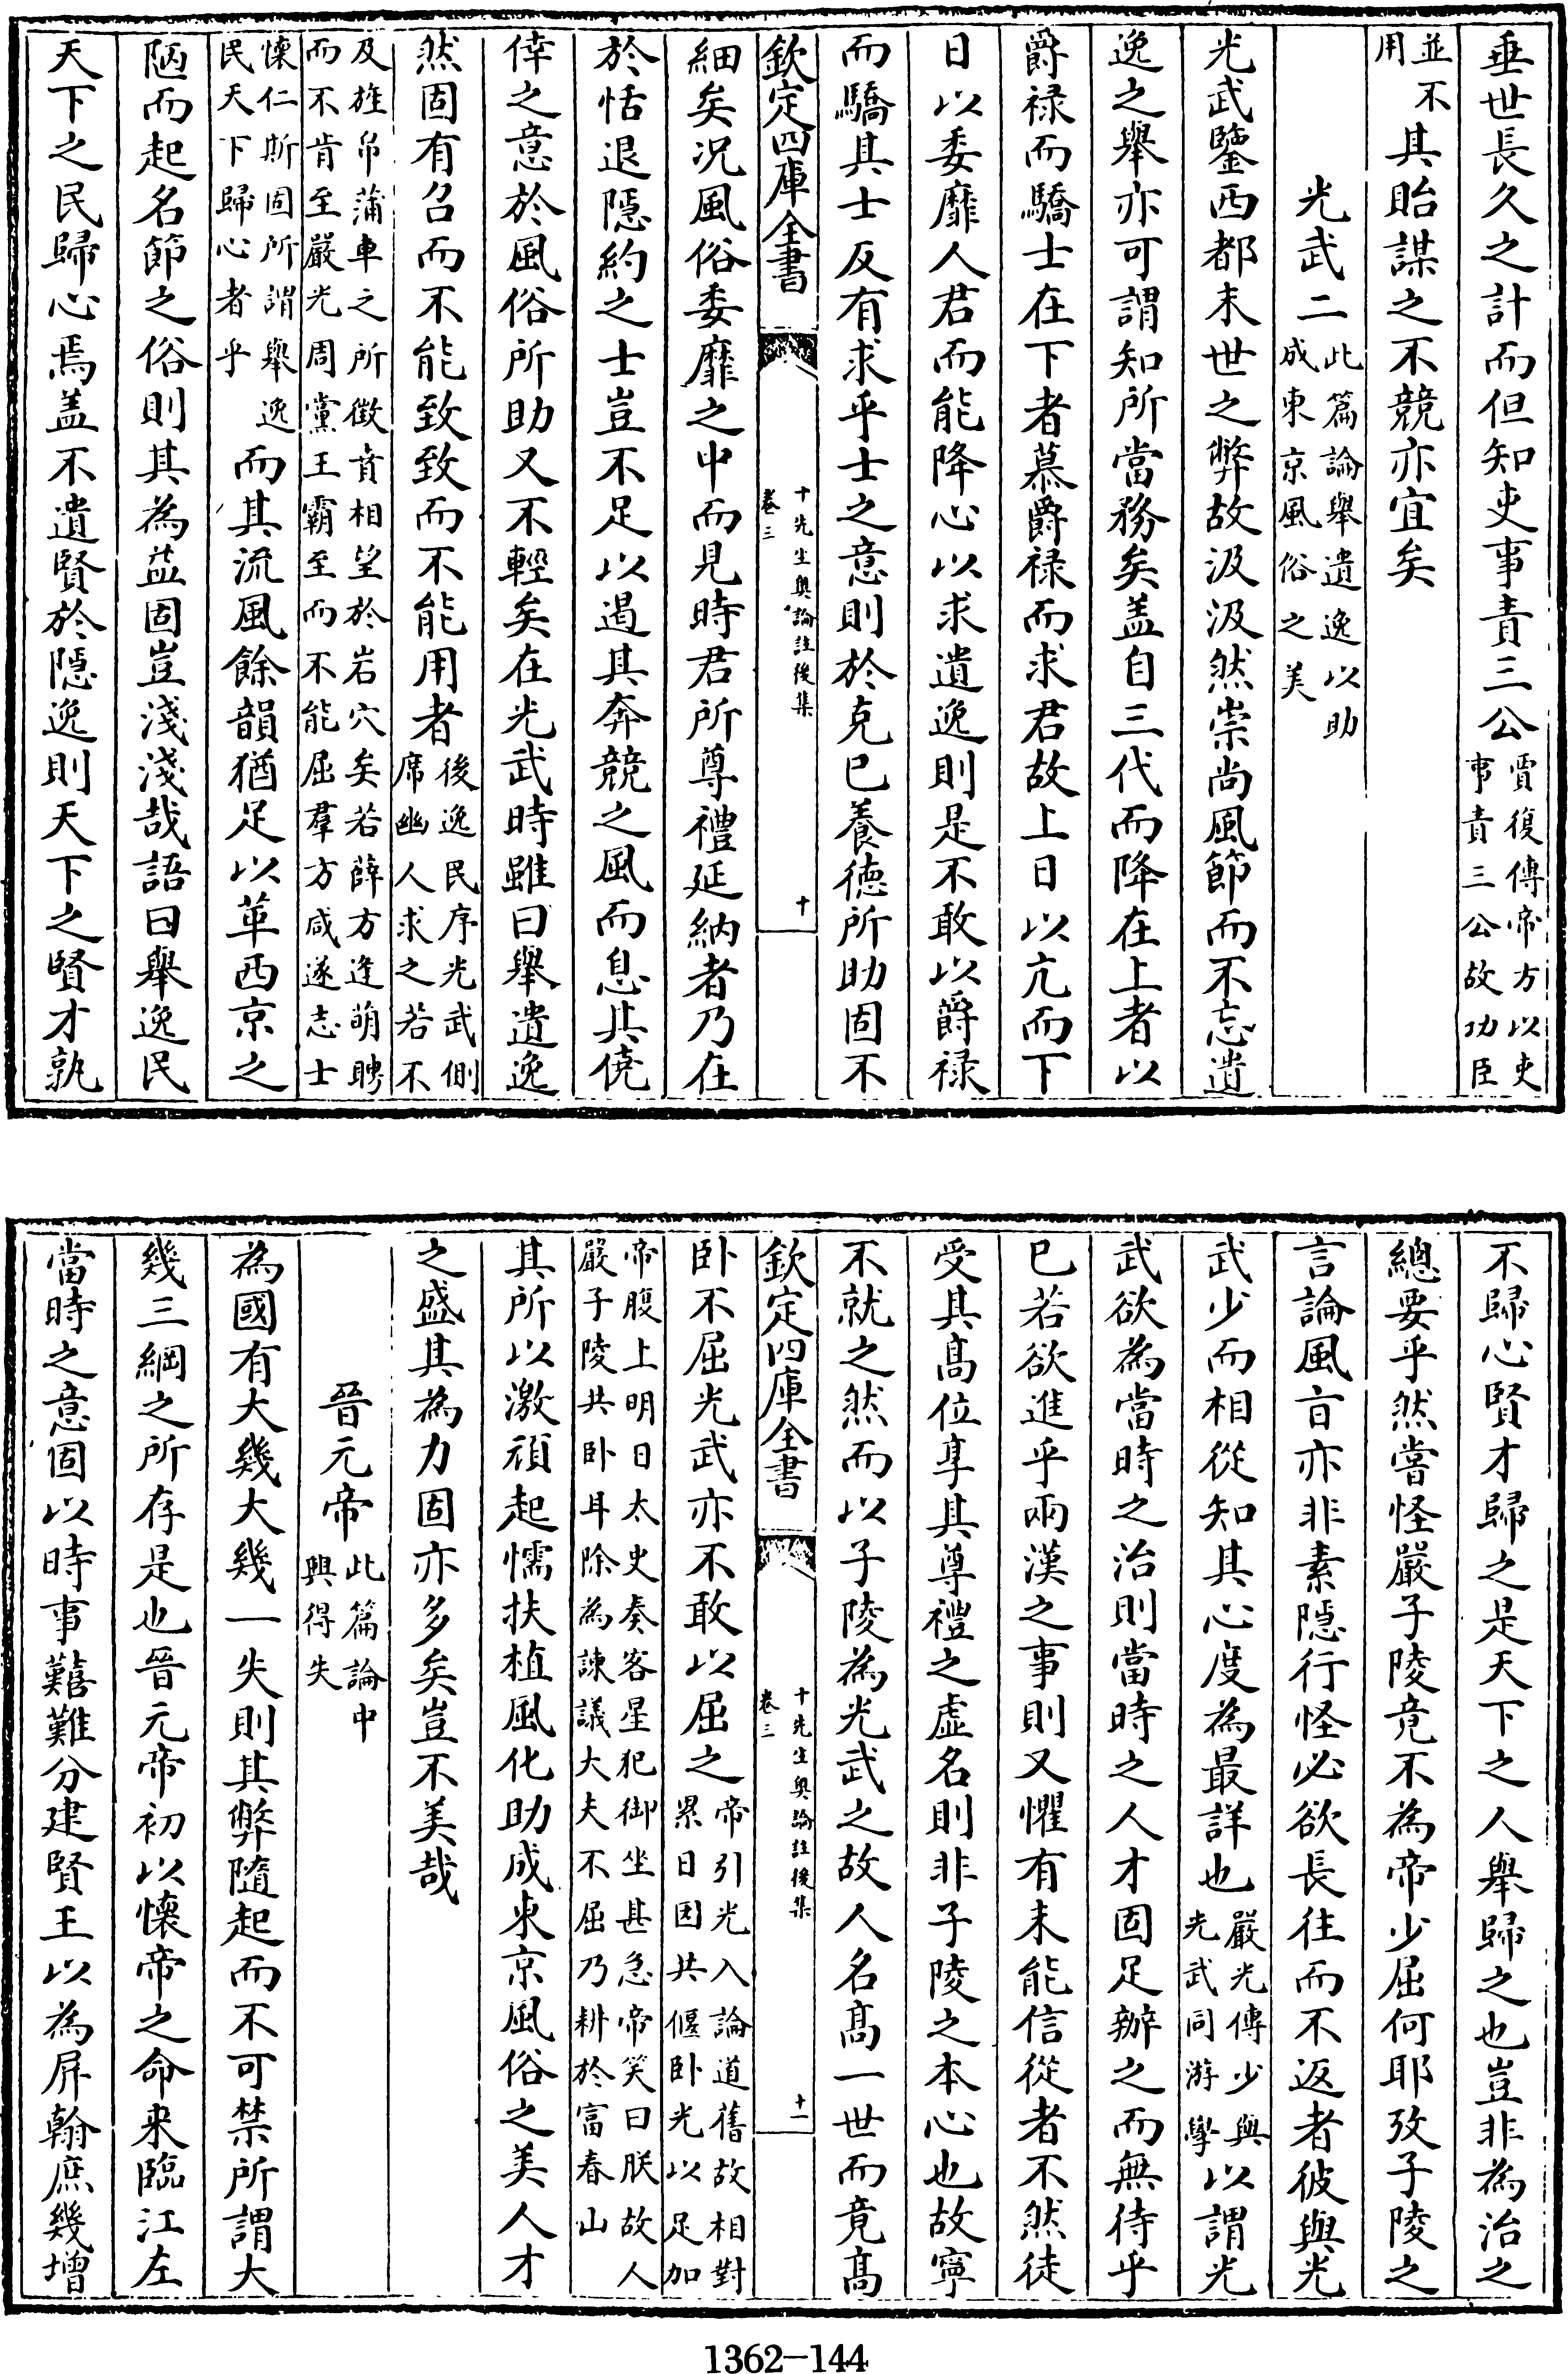 垂世長久之計而但知吏事責三公賈復傳帝方以吏事責三公故功臣
並不用其貽謀之不競亦宜矣
光武二此篇論舉遺逸以助成東京風俗之美
光武鑒西都末世之弊故汲汲然崇尚風節而不忘遺
逸之舉亦可謂知所當務矣盖自三代而降在上者以
爵祿而驕士在下者慕爵祿而求君故上日以亢而下
日以委靡人君而能降心以求遺逸則是不敢以爵祿
而驕其士反有求乎士之意則於克已養德所助固不
欽定四庫全書 十先生奥論註後集 卷三 十
細矣況風俗委靡之中而見時君所尊禮延納者乃在
於恬退隱約之士豈不足以遏其奔競之風而息其僥
倖之意於風俗所助又不輕矣在光武時雖曰舉遺逸
然固有召而不能致致而不能用者後逸民序光武側席幽人求之若不
及旌帛蒲車之所徵賁相望於岩穴矣若薛方逄萌聘而不肯至嚴光周黨王霸至而不能屈羣方咸遂志士
懐仁斯固所謂舉逸民天下歸心者乎而其流風餘韻猶足以革西京之
陋而起名節之俗則其為益固豈淺淺哉語曰舉逸民
天下之民歸心焉盖不遺賢於隱逸則天下之賢才孰
不歸心賢才歸之是天下之人舉歸之也豈非為治之
總要乎然嘗怪嚴子陵竟不為帝少屈何耶攷子陵之
言論風㫖亦非素隱行怪必欲長往而不返者彼與光
武少而相從知其心度為最詳也嚴光傳少與光武同游學以謂光
武欲為當時之治則當時之人才固足辦之而無待乎
已若欲進乎兩漢之事則又懼有未能信從者不然徒
受其髙位享其尊禮之虚名則非子陵之本心也故寧
不就之然而以子陵為光武之故人名髙一世而竟髙
欽定四庫全書 十先生奥論註後集 卷三 十一
卧不屈光武亦不敢以屈之帝引光入論道舊故相對累日因共偃卧光以足加
帝腹上明日太史奏客星犯御坐甚急帝笑曰朕故人嚴子陵共卧耳除為諫議大夫不屈乃耕於富春山
其所以激頑起懦扶植風化助成東京風俗之美人才
之盛其為力固亦多矣豈不美哉
晉元帝此篇論中興得失
為國有大幾大幾一失則其弊隨起而不可禁所謂大
幾三綱之所存是也晉元帝初以懷帝之命来臨江左
當時之意固以時事艱難分建賢王以為屏翰庶幾增
1362-144